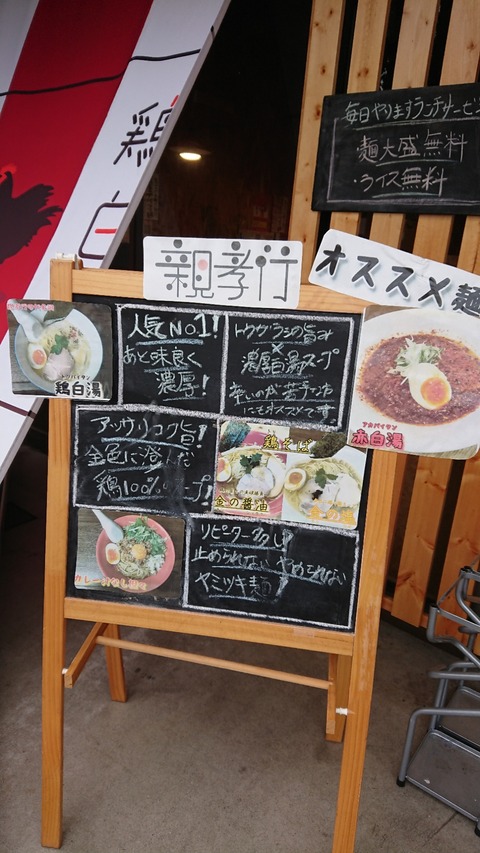 鶏白
毎日やりますランチサービス
・麺大盛無料
・ライス無料
親孝行
オススメ麺
トリパイタン
鶏白湯
人気No1!
あと味良く
濃厚!
トウガラシの旨み
×
濃厚白湯スープ
辛いのが苦手な方
にもオススメです。
アカパイタン
赤白湯
アッサリコク旨!
金色に澄んだ
鶏100%スープ!
鶏そば
金の醤油
金の塩
リピーター多し!
止められない やめられない
ヤミツキ麺!